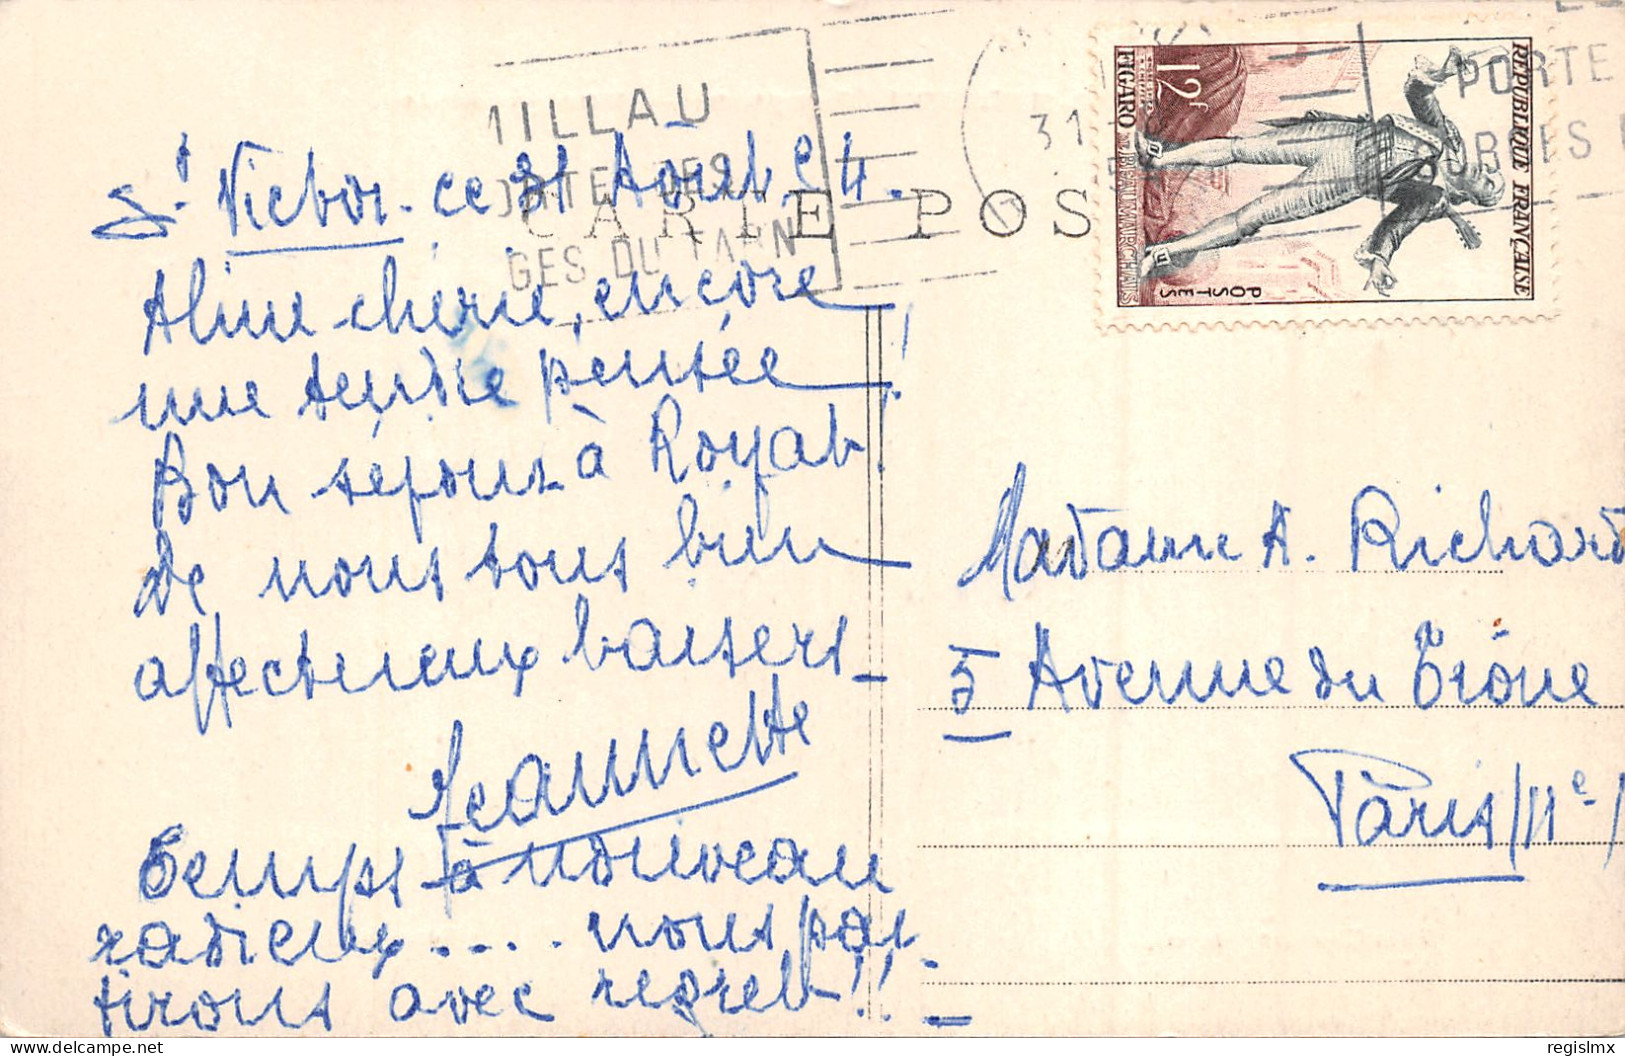 MILLAU
PORTE DES
GORGES DU TARN
31
CARTE POS
RÉPUBLIQUE FRANÇAISE
12F
FIGARO
BEAUMARCHAIS
POSTES
PORTE
GORGES
St Victor. ce 31 Août 54.
Aline chérie, encore
une tendre pensée!
Bon séjour à Royat!
De nous tous bien
affectueux baisers_
Jeannette
Temps à nouveau
radieux.... nous par-
tirons avec regret!!_
Madame A. Richard
5 Avenue du Trône
Paris/11e/
regislmx